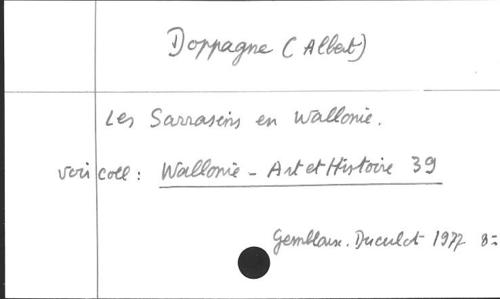 Doppagne (Albert)
Les Sarrasins en Wallonie.
voir coll : Wallonie - Art et Histoire 39
Gembloux. Duculot 1977 8=